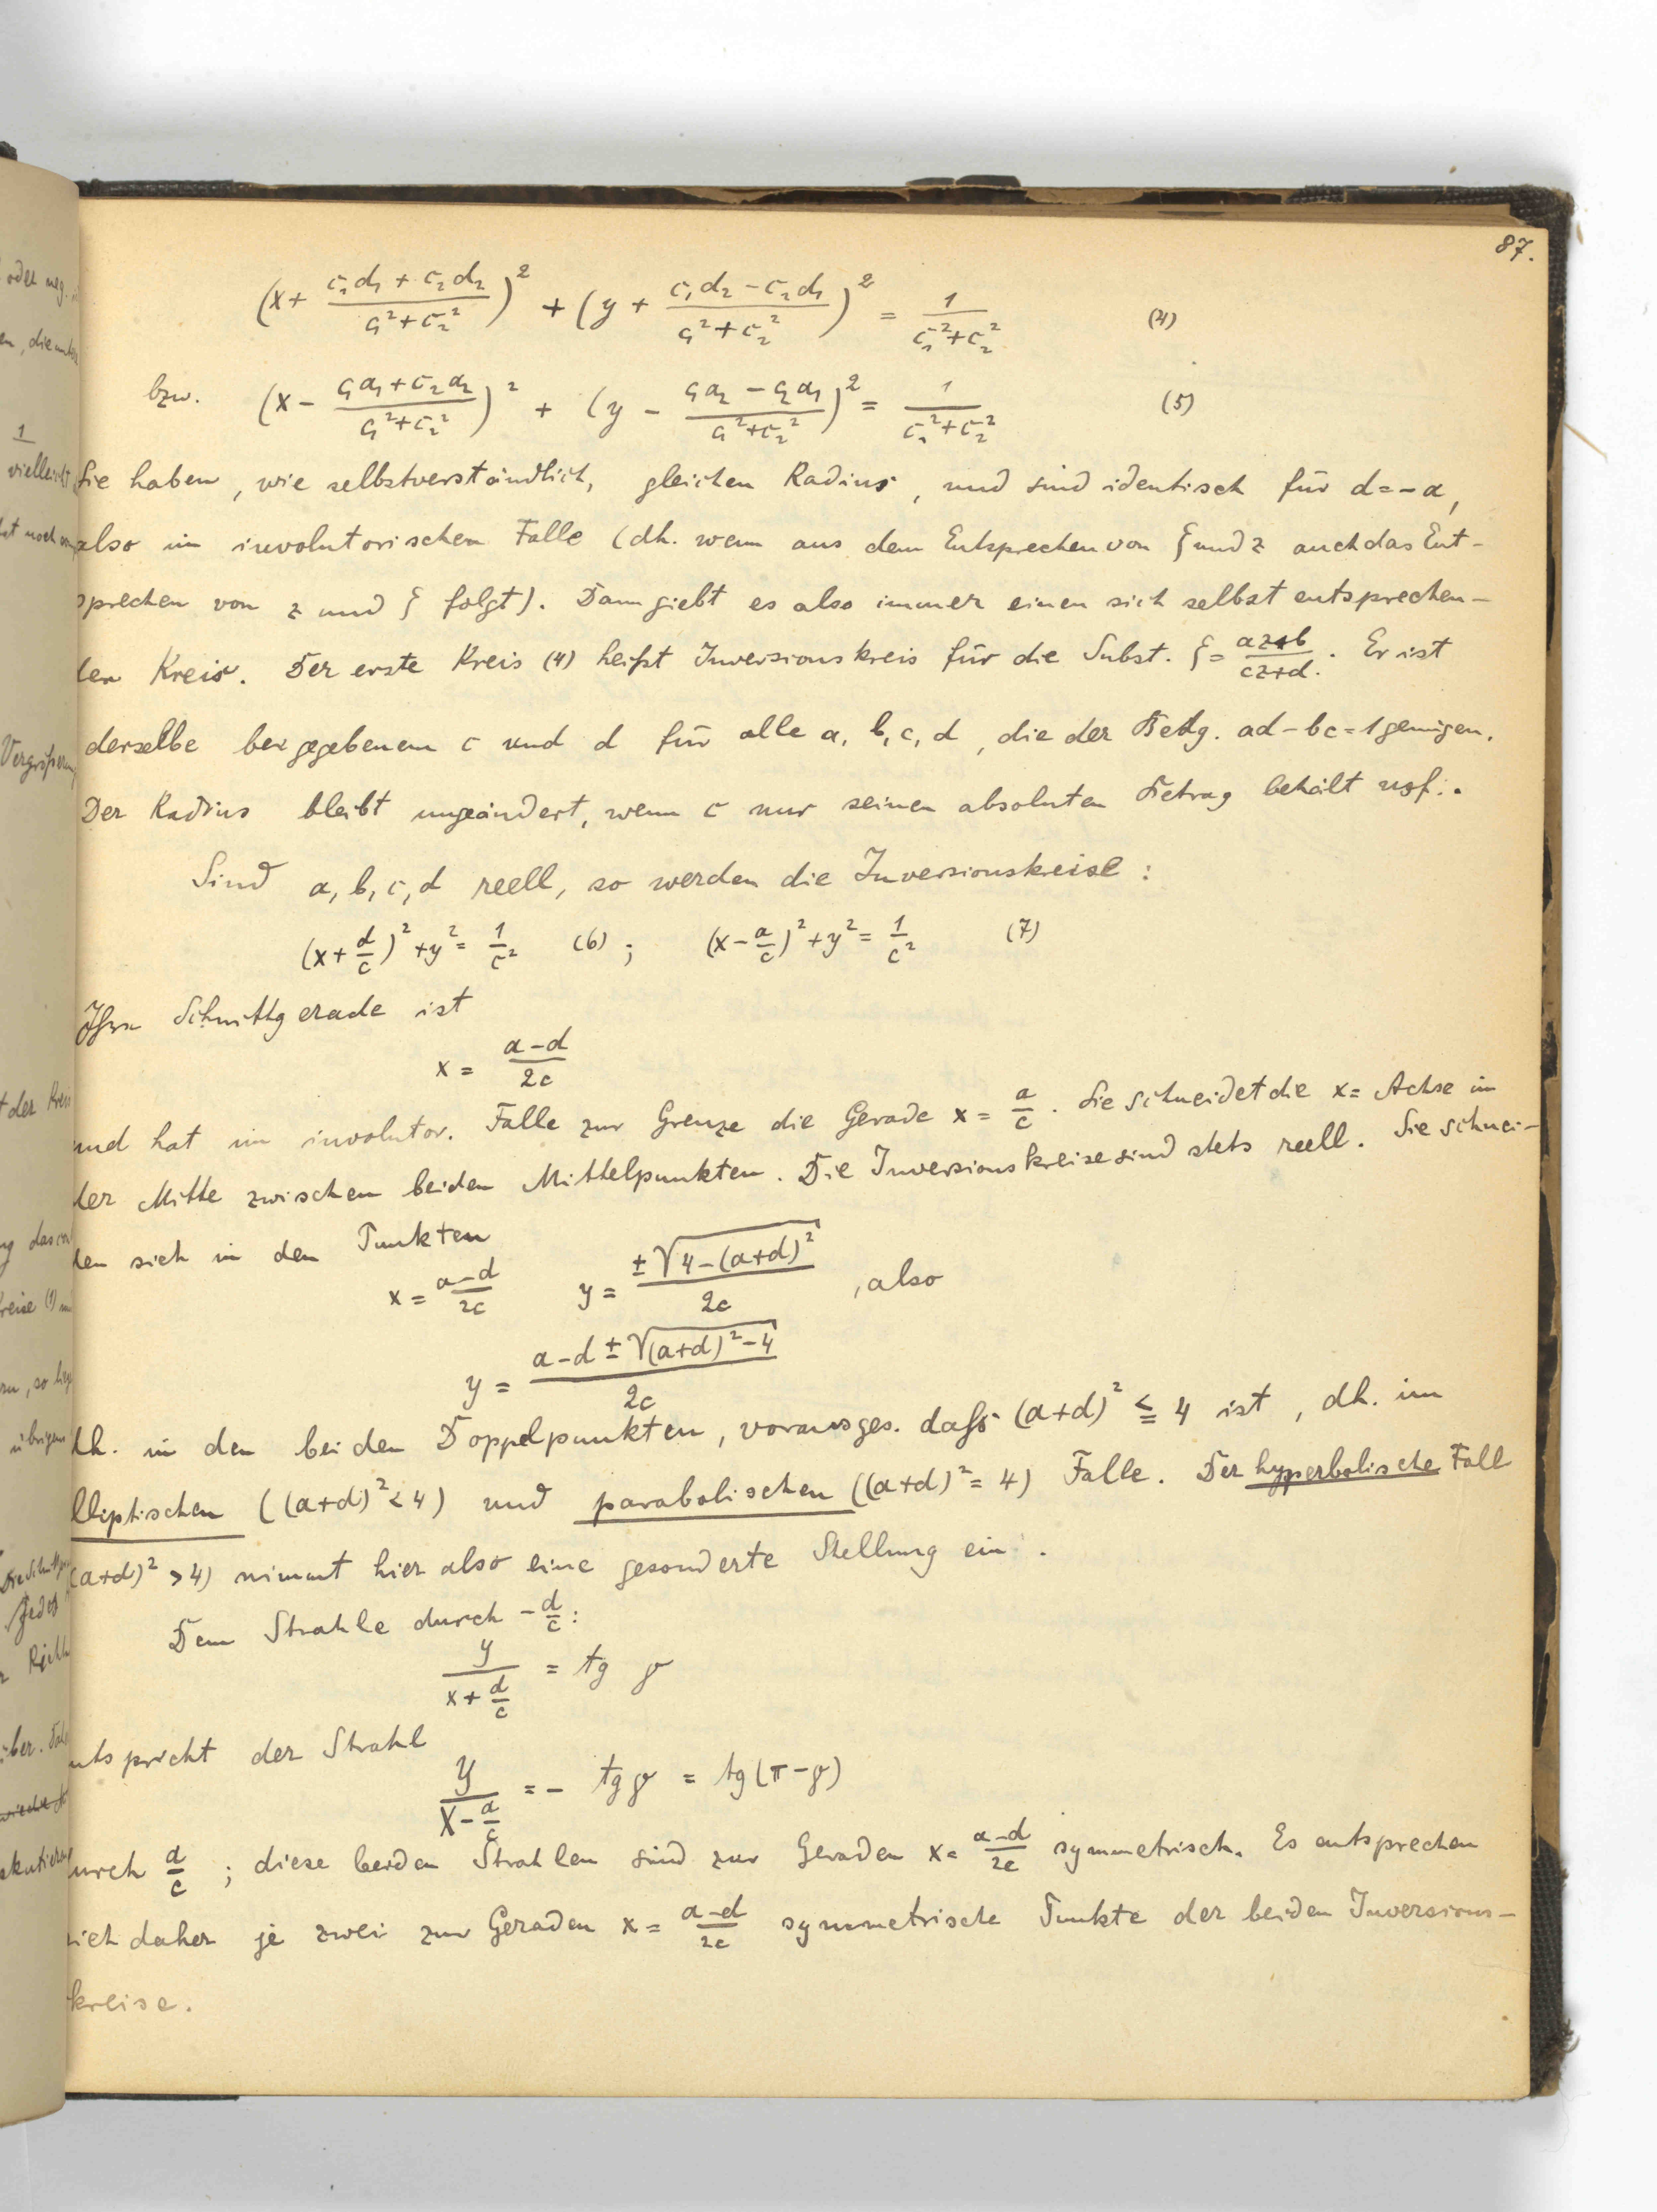 87.
(x + (c₁d₁ + c₂d₂)/(c₁² + c₂²))² + (y + (c₁d₂ − c₂d₁)/(c₁² + c₂²))² = 1/(c₁² + c₂²) (4)
bzw. (x − (c₁a₁ + c₂a₂)/(c₁² + c₂²))² + (y − (c₁a₂ − c₂a₁)/(c₁² + c₂²))² = 1/(c₁² + c₂²) (5)
Sie haben, wie selbstverständlich, gleichen Radius, und sind identisch für d = −a,
also im involutorischen Falle (dh. wenn aus dem Entsprechen von ζ und z auch das Ent-
sprechen von z und ζ folgt). Dann giebt es also immer einen sich selbst entsprechen-
den Kreis. Der erste Kreis (4) heißt Inversionskreis für die Subst. ζ = (az+b)/(cz+d). Er ist
derselbe bei gegebenem c und d für alle a, b, c, d, die der Bedg. ad − bc = 1 genügen.
Der Radius bleibt ungeändert, wenn c nur seinen absoluten Betrag behält usf..
Sind a, b, c, d reell, so werden die Inversionskreise:
(x + d/c)² + y² = 1/c² (6) ; (x − a/c)² + y² = 1/c² (7)
Ihre Schnittgerade ist
x = (a − d)/2c
und hat im involutor. Falle zur Grenze die Gerade x = a/c. Sie schneidet die x= Achse in
der Mitte zwischen beiden Mittelpunkten. Die Inversionskreise sind stets reell. Sie schnei-
den sich in den Punkten
x = (a − d)/2c y = ±√(4 − (a+d)²)/2c , also
y = (a − d ± √((a+d)² − 4))/2c
dh. in den beiden Doppelpunkten, vorausges. daß (a+d)² ≤ 4 ist, dh. im
elliptischen ((a+d)² < 4) und parabolischen ((a+d)² = 4) Falle. Der hyperbolische Fall
(a+d)² > 4) nimmt hier also eine gesonderte Stellung ein.
Dem Strahle durch −d/c:
y/(x + d/c) = tg φ
entspricht der Strahl
Y/(X − a/c) = − tg φ = tg(π − φ)
durch a/c ; diese beiden Strahlen sind zur Geraden x = (a−d)/2c symmetrisch. Es entsprechen
sich daher je zwei zur Geraden x = (a−d)/2c symmetrische Punkte der beiden Inversions-
kreise.